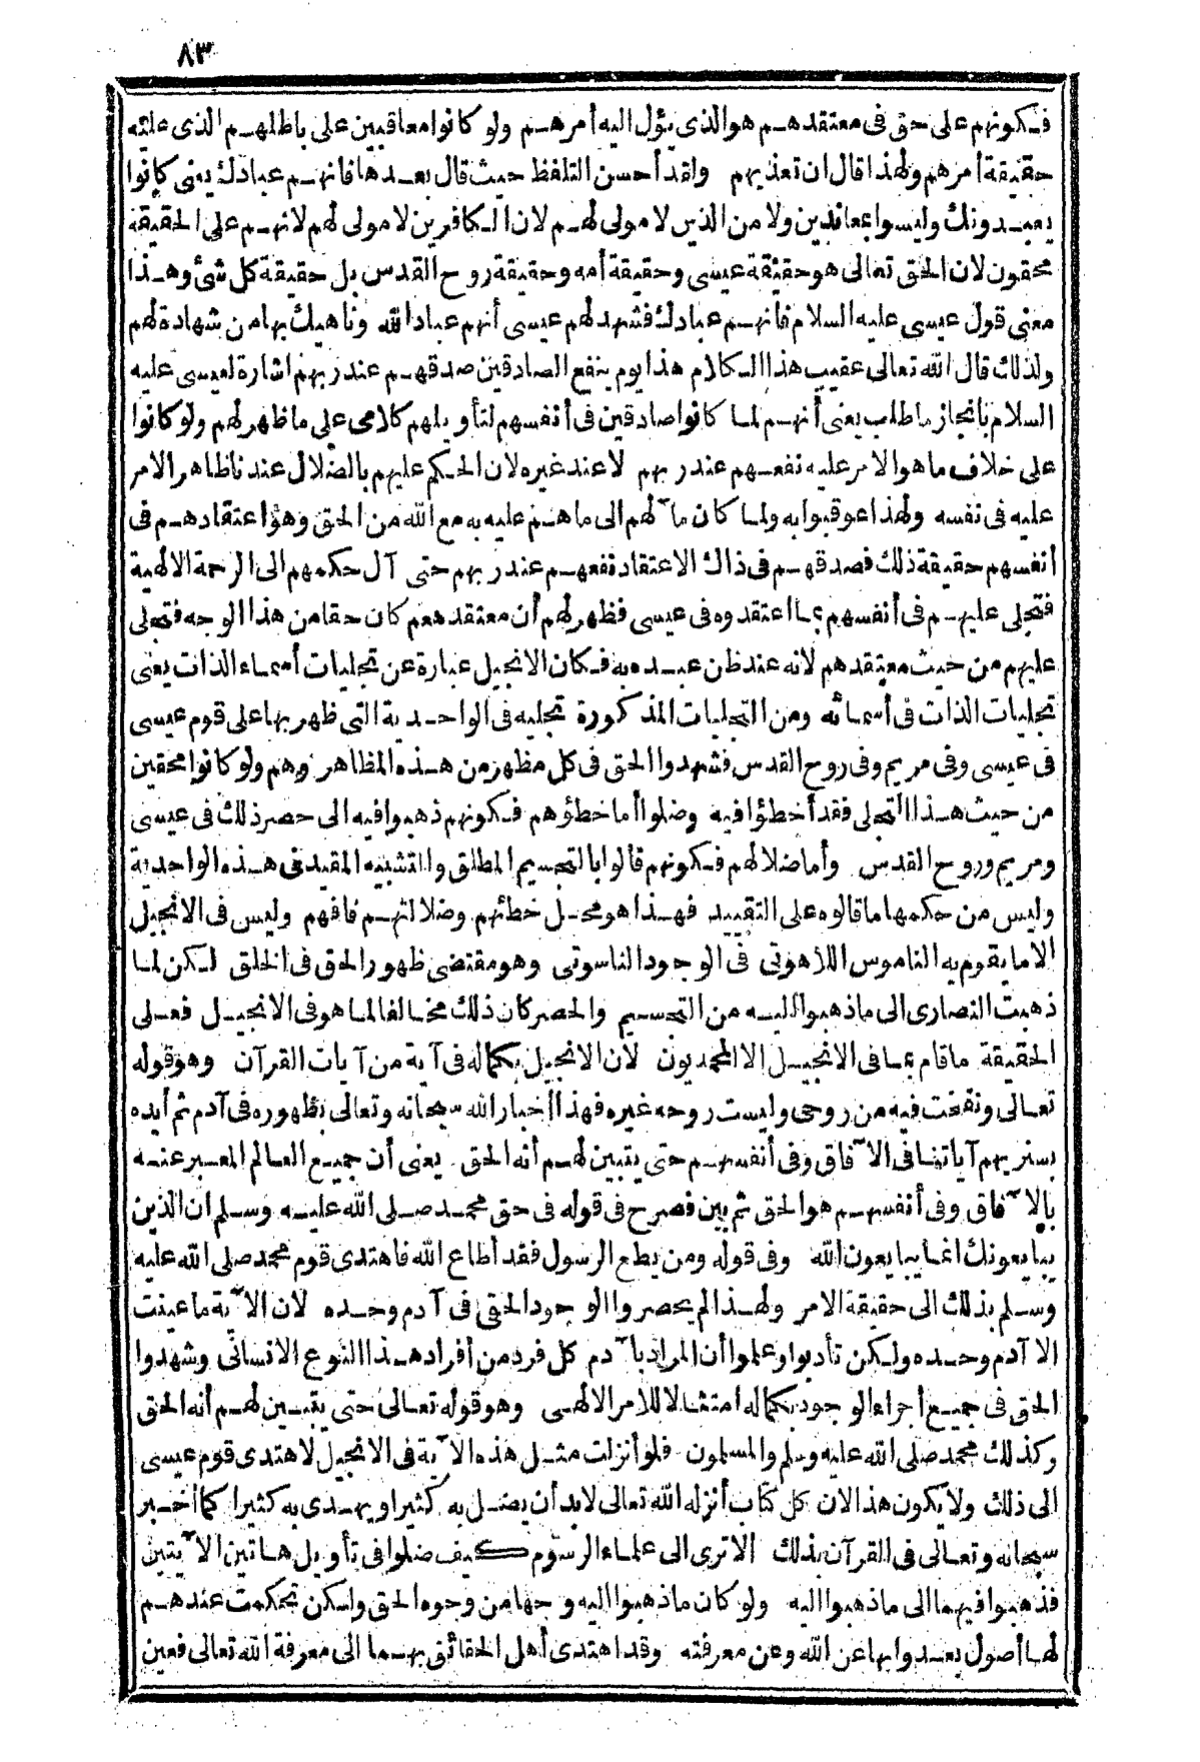 ٨٣
فكونهم على حق فى معتقدهم هو الذى يؤل اليه أمرهم ولو كانوا معاقبين على باطلهم الذى عليه
حقيقة أمرهم ولهذا قال ان تعذبهم ولقد أحسن التلفظ حيث قال بعدها فانهم عبادك يعنى كانوا
يعبدونك وليسوا بمعاندين ولا من الذين لا مولى لهم لان الكافرين لا مولى لهم لانهم على الحقيقة
محقون لان الحق تعالى هو حقيقة عيسى وحقيقة أمه وحقيقة روح القدس بل حقيقة كل شئ وهذا
معنى قول عيسى عليه السلام فانهم عبادك فشهد لهم عيسى أنهم عباد الله وناهيك بها من شهادة لهم
ولذلك قال الله تعالى عقيب هذا الكلام هذا يوم ينفع الصادقين صدقهم عند ربهم اشارة لعيسى عليه
السلام بانجاز ما طلب يعنى أنهم لما كانوا صادقين فى أنفسهم لتأويلهم كلامى على ما ظهر لهم ولو كانوا
على خلاف ما هو الامر عليه نفعهم عند ربهم لا عند غيره لان الحكم عليهم بالضلال عندنا ظاهر الامر
عليه فى نفسه ولهذا عوقبوا به ولما كان مآلهم الى ما هم عليه به مع الله من الحق وهو اعتقادهم فى
أنفسهم حقيقة ذلك فصدقهم فى ذاك الاعتقاد نفعهم عند ربهم حتى آل حكمهم الى الرحمة الالهية
فتجلى عليهم فى أنفسهم بما اعتقدوه فى عيسى فظهر لهم أن معتقدهم كان حقا من هذا الوجه فتجلى
عليهم من حيث معتقدهم لانه عند ظن عبده به فكان الانجيل عبارة عن تجليات أسماء الذات يعنى
تجليات الذات فى أسمائه ومن التجليات المذكورة تجليه فى الواحدية التى ظهر بها على قوم عيسى
فى عيسى وفى مريم وفى روح القدس فشهدوا الحق فى كل مظهر من هذه المظاهر وهم ولو كانوا محقين
من حيث هذا التجلى فقد أخطؤا فيه وضلوا أما خطؤهم فكونهم ذهبوا فيه الى حصر ذلك فى عيسى
ومريم وروح القدس وأما ضلالهم فكونهم قالوا بالتجسيم المطلق والتشبيه المقيد فى هذه الواحدية
وليس من حكمها ما قالوه على التقييد فهذا هو محل خطئهم وضلالتهم فافهم وليس فى الانجيل
الا ما يقوم به الناموس اللاهوتى فى الوجود الناسوتى وهو مقتضى ظهور الحق فى الخلق لكن لما
ذهبت النصارى الى ما ذهبوا اليه من التجسيم والحصر كان ذلك مخالفا لما هو فى الانجيل فعلى
الحقيقة ما قام بما فى الانجيل الا المحمديون لان الانجيل بكماله فى آية من آيات القرآن وهو قوله
تعالى ونفخت فيه من روحى وليست روحه غيره فهذا أخبار الله سبحانه وتعالى بظهوره فى آدم ثم أيده
بسنريهم آياتنا فى الآفاق وفى أنفسهم حتى يتبين لهم أنه الحق يعنى أن جميع العالم المعبر عنه
بالآفاق وفى أنفسهم هو الحق ثم بين فصرح فى قوله فى حق محمد صلى الله عليه وسلم ان الذين
يبايعونك انما يبايعون الله وفى قوله ومن يطع الرسول فقد أطاع الله فاهتدى قوم محمد صلى الله عليه
وسلم بذلك الى حقيقة الامر ولهذا لم يحصروا الوجود الحق فى آدم وحده لان الآية ما عينت
الا آدم وحده ولكن تأدبوا وعلموا أن المراد بآدم كل فرد من أفراد هذا النوع الانسانى وشهدوا
الحق فى جميع أجزاء الوجود بكماله امتثالا للامر الالهى وهو قوله تعالى حتى يتبين لهم أنه الحق
وكذلك محمد صلى الله عليه وسلم والمسلمون فلو أنزلت مثل هذه الآية فى الانجيل لاهتدى قوم عيسى
الى ذلك ولا يكون هذا لان كل كتاب أنزله الله تعالى لابد أن يضل به كثيرا ويهدى به كثيرا كما أخبر
سبحانه وتعالى فى القرآن بذلك الا ترى الى علماء الرسوم كيف ضلوا فى تأويل هاتين الآيتين
فذهبوا فيهما الى ما ذهبوا اليه ولو كان ما ذهبوا اليه وجها من وجوه الحق ولكن تحكمت عندهم
لها أصول بعدوا بها عن الله وعن معرفته وقد اهتدى أهل الحقائق بهما الى معرفة الله تعالى فعين